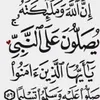 إِنَّ اللَّهَ وَمَلَٰئِكَتَهُ
يُصَلُّونَ عَلَى النَّبِيِّ
يَا أَيُّهَا الَّذِينَ آمَنُوا
صَلُّوا عَلَيْهِ وَسَلِّمُوا تَسْلِيمًا